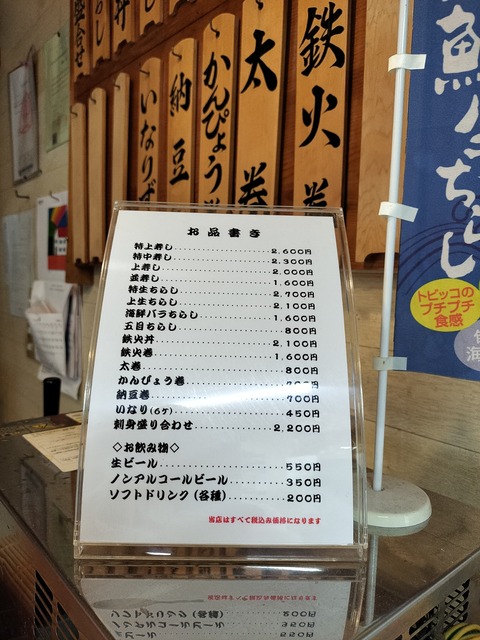 盛合せ
鉄火巻
太巻
かんぴょう巻
納豆
いなりず
ちらし
トビッコの
プチプチ
食感
お品書き
特上寿し 2,600円
特中寿し 2,300円
上寿し 2,000円
並寿し 1,600円
特生ちらし 2,700円
上生ちらし 2,100円
海鮮バラちらし 1,600円
五目ちらし 800円
鉄火丼 2,100円
鉄火巻 1,600円
太巻 800円
かんぴょう巻
納豆巻 700円
いなり(6ケ) 450円
刺身盛り合わせ 2,200円
◇お飲み物◇
生ビール 550円
ノンアルコールビール 350円
ソフトドリンク(各種) 200円
当店はすべて税込み価格になります